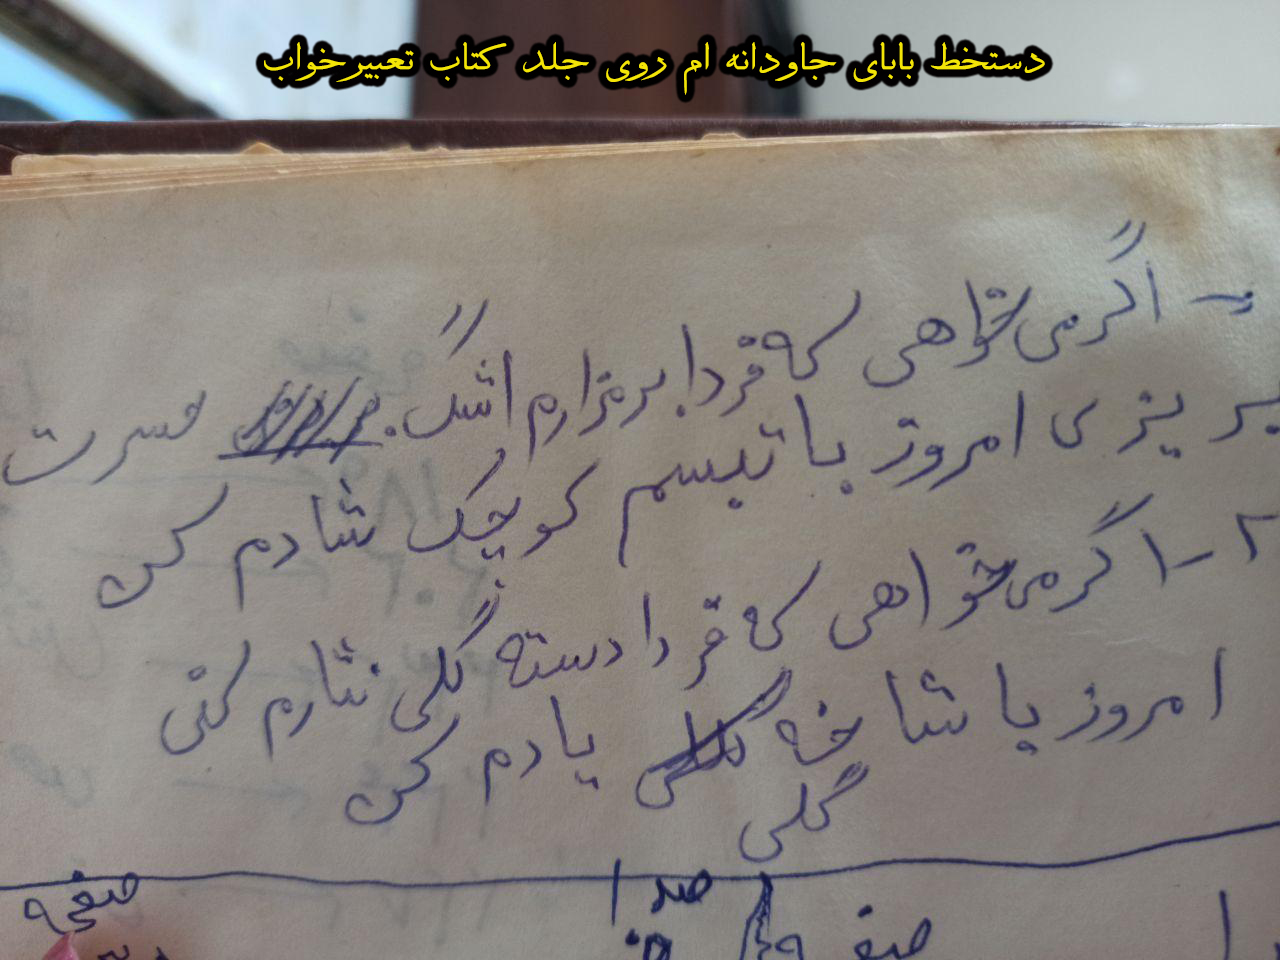 دستخط بابای جاودانه ام روی جلد کتاب تعبیرخواب
- اگر می خواهی که فردا برمزارم اشگ حسرت
بریزی امروز با تبسم کوچک شادم کن
۲- اگر می خواهی که فردا دسته گلی نثارم کنی
امروز با شاخه گلی یادم کن
گلی
صدا صفحه